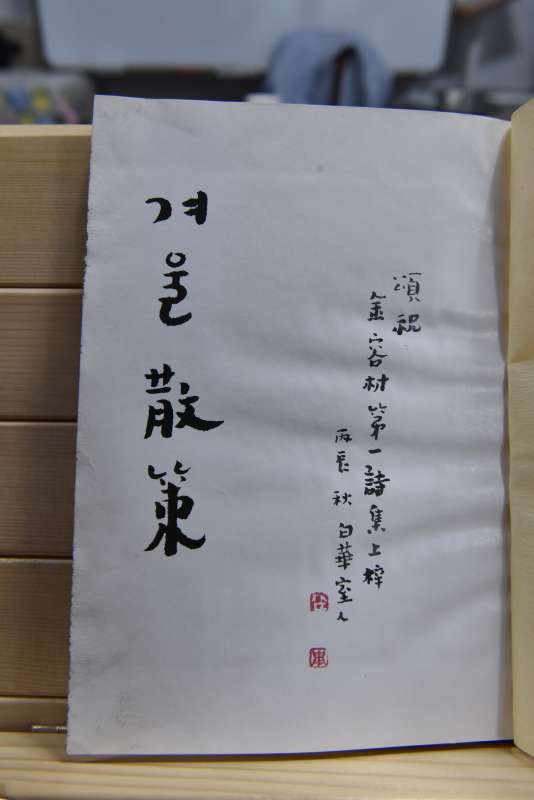 頌祝
金容材第一詩集上梓
丙辰 秋 白華室人
겨울散策